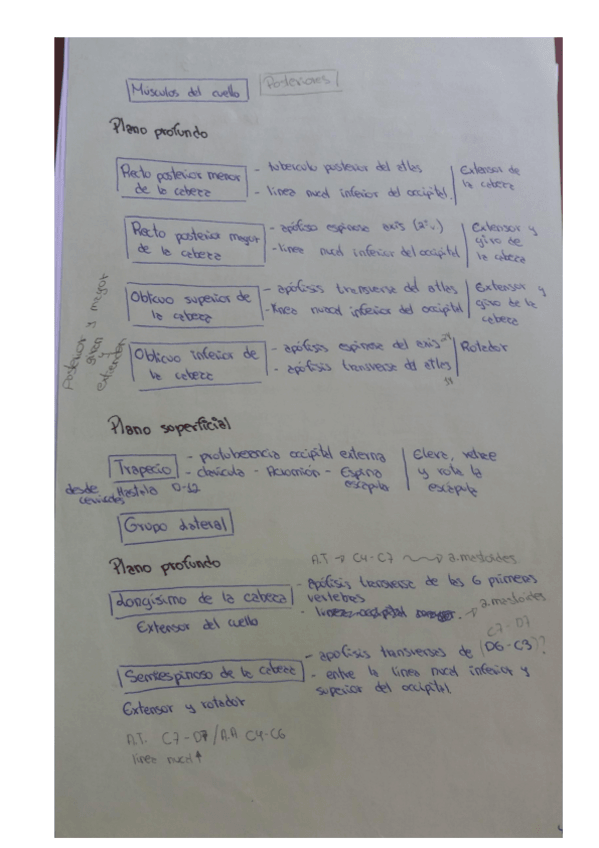 Músculos del cuello Posteriores
Plano profundo
Recto posterior menor - tuberculo posterior del atlas Extensor de
de la cabeza - linea nucal inferior del occipital. la cabeza
Recto posterior mayor - apófisis espinosa axis (2ª v.) Extensor y
de la cabeza - linea nucal inferior del occipital giro de
la cabeza
Oblicuo superior de - apófisis transversa del atlas Extensor y
la cabeza - linea nucal inferior del occipital giro de la
cabeza
Posterior y mayor
giran y
extienden
Oblicuo inferior de - apófisis espinosa del axis Rotador
la cabeza - apófisis transversa del atlas
Plano superficial
Trapecio - protuberancia occipital externa Eleva, retrae
- clavicula - Acromión - Espina y rota la
escápula escápula
desde cervicales Hasta la D-12
Grupo lateral
Plano profundo A.T → C4-C7 a.mastoides
Longísimo de la cabeza - Apófisis transversa de las 6 primeras
vertebras
Extensor del cuello → a.mastoides
C7-D7
Semiespinoso de la cabeza - apofisis transversas de (D6-C3)?
- entre la linea nucal inferior y
superior del occipital.
Extensor y rotador
A.T. C7-D7/A.A C4-C6
linea nucal ↑